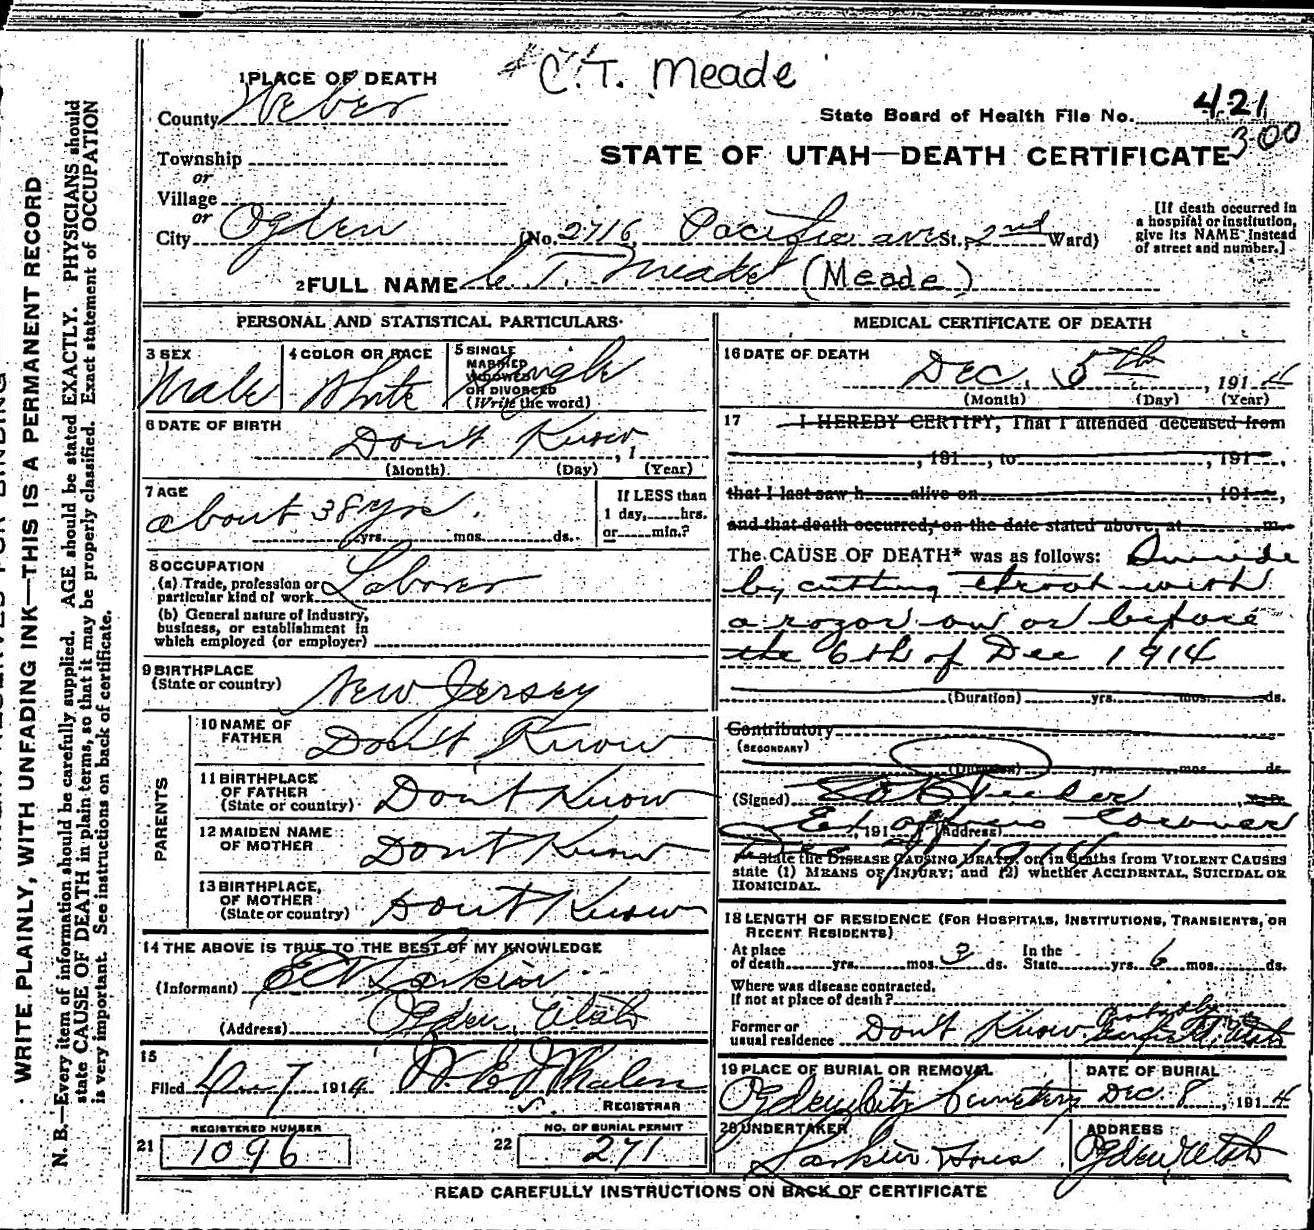 C.T. Meade
1 PLACE OF DEATH
County Weber
State Board of Health File No. 421
300
Township
or
STATE OF UTAH—DEATH CERTIFICATE
Village
or
City Ogden (No. 2716 Pacific ave St., 2nd Ward)
[If death occurred in a hospital or institution, give its NAME instead of street and number.]
2 FULL NAME C. T. Meade (Meade)
PERSONAL AND STATISTICAL PARTICULARS
3 SEX
Male
4 COLOR OR RACE
White
5 SINGLE
MARRIED
WIDOWED
OR DIVORCED
(Write the word)
Single
6 DATE OF BIRTH
Don't Know, 1
(Month) (Day) (Year)
7 AGE
about 38 yrs.
yrs. mos. ds.
If LESS than
1 day, hrs.
or min.?
8 OCCUPATION
(a) Trade, profession or
particular kind of work Laborer
(b) General nature of industry,
business, or establishment in
which employed (or employer)
9 BIRTHPLACE
(State or country) New Jersey
PARENTS
10 NAME OF
FATHER Don't Know
11 BIRTHPLACE
OF FATHER
(State or country) Don't Know
12 MAIDEN NAME
OF MOTHER Don't Know
13 BIRTHPLACE,
OF MOTHER
(State or country) Dont Know
14 THE ABOVE IS TRUE TO THE BEST OF MY KNOWLEDGE
(Informant) Larkin
(Address) Ogden, Utah
15
Filed Dec 7 1914 W. E. Whalen
REGISTRAR
REGISTERED NUMBER
21 1096
NO. OF BURIAL PERMIT
22 271
MEDICAL CERTIFICATE OF DEATH
16 DATE OF DEATH
Dec. 5th, 1914
(Month) (Day) (Year)
17 I HEREBY CERTIFY, That I attended deceased from
, 191 , to , 191 ,
that I last saw h alive on , 191 ,
and that death occurred, on the date stated above, at m.
The CAUSE OF DEATH* was as follows: Suicide
by cutting throat with
a razor on or before
the 6th of Dec 1914
(Duration) yrs. mos. ds.
Contributory
(SECONDARY)
(Duration) yrs. mos. ds.
(Signed)
Ex officio Coroner
, 191 (Address)
Dec 7 1914
* State the DISEASE CAUSING DEATH, or, in deaths from VIOLENT CAUSES
state (1) MEANS OF INJURY; and (2) whether ACCIDENTAL, SUICIDAL OR
HOMICIDAL.
18 LENGTH OF RESIDENCE (FOR HOSPITALS, INSTITUTIONS, TRANSIENTS, OR
RECENT RESIDENTS)
At place
of death yrs. mos. 3 ds. In the
State yrs. 6 mos. ds.
Where was disease contracted,
if not at place of death?
Former or
usual residence Don't Know Garfield, Utah
19 PLACE OF BURIAL OR REMOVAL
Ogden City Cemetery
DATE OF BURIAL
Dec. 8, 1914
20 UNDERTAKER
Larkin Sons
ADDRESS
Ogden, Utah
READ CAREFULLY INSTRUCTIONS ON BACK OF CERTIFICATE
WRITE PLAINLY, WITH UNFADING INK—THIS IS A PERMANENT RECORD
N. B.—Every item of information should be carefully supplied. AGE should be stated EXACTLY. PHYSICIANS should
state CAUSE OF DEATH in plain terms, so that it may be properly classified. Exact statement of OCCUPATION
is very important. See instructions on back of certificate.